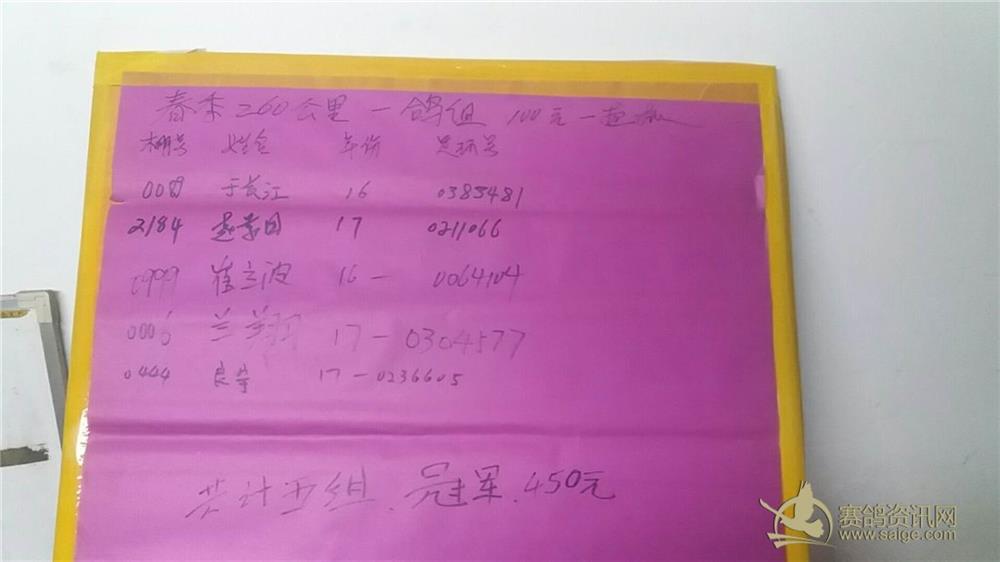 春季260公里一鸽组 100元一
棚号 姓名 年份 足环号
于长江 16 0385481
2184 景国 17 0211066
0999 崔立波 16- 0064104
0006 兰翔 17-0304577
0444 良宇 17-0236605
共计五组、冠军、450元
赛鸽资讯网
www.saige.com